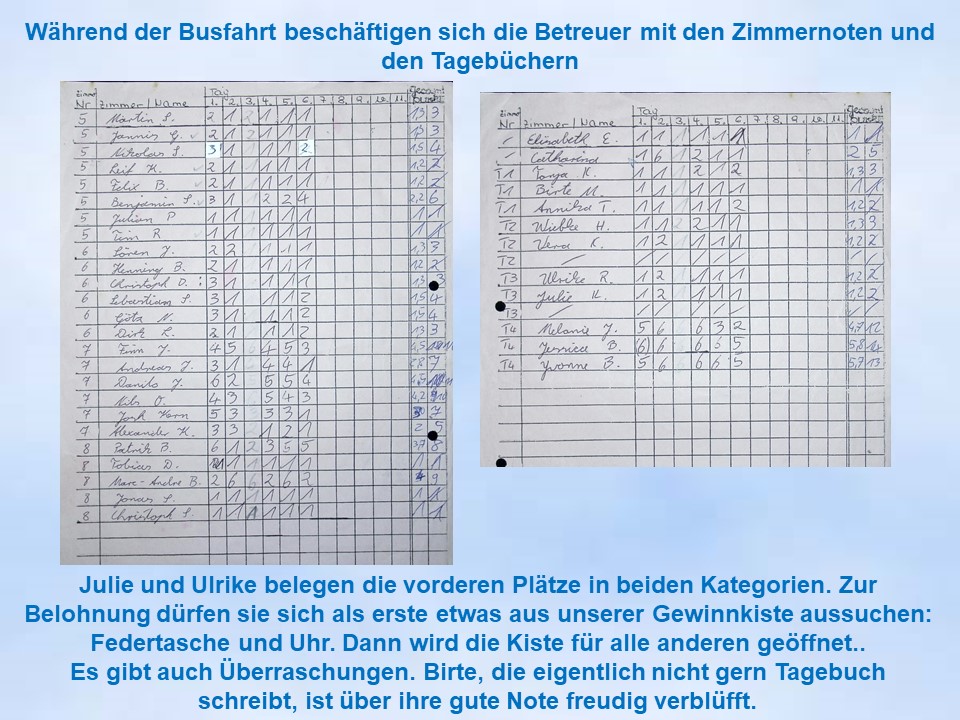 Während der Busfahrt beschäftigen sich die Betreuer mit den Zimmernoten und
den Tagebüchern
Zimmer Tag Gesamt
Nr Zimmer/Name 1. 2. 3. 4. 5. 6. 7 8. 9. 10. 11. punkte
5 Martin S. 2 1 2 1 1 1 1,3 3
5 Jannis G. 2 1 1 1 1 1,3 3
5 Nikolas S. 3 1 1 1 2 1,5 4
5 Leif K. 2 1 1 1 1 1,2 2
5 Felix B. 2 1 1 1 1 1,2 2
5 Benjamin S. 3 1 2 2 4 2,2 6
5 Julian P 1 1 1 1 1 1 1
5 Tim R 1 1 1 1 1 1 1
6 Sören J. 2 2 1 1 1 1,3 3
6 Henning B. 2 1 1 1 1 1,2 2
6 Christoph D. 3 1 1 1 1 1,3 3
6 Sebastian S. 3 1 1 1 2 1,5 4
6 Götz N. 3 1 1 1 2 1,5 4
6 Dirk R. 2 1 1 1 2 1,3 3
7 Finn J. 4 5 4 5 3
7 Andreas J. 3 1 4 4 1 7
7 Danilo J. 6 2 5 5 4
7 Nils O. 4 3 5 4 3 4,2
7 Josh Kern 5 3 3 3 1 7
7 Alexander K. 3 3 1 2 1 2 5
8 Patrik B. 6 1 2 3 5 5 3,7 8
8 Tobias D. 1 1 1 1 1 1 1
8 Marc-Andre B. 2 6 6 2 6 2 4 9
8 Jonas S. 1 1 1 1 1 1 1 1
8 Christoph S. 1 1 1 1 1 1 1 1
Zimmer Tag Gesamt
Nr Zimmer/Name 1. 2. 3. 4. 5. 6. 7. 8. 9. 10. 11. punkte
Elisabeth E. 1 1 1 1 1 1 1
Catharina 1 6 1 2 1 1 2 5
T1 Tonja K. 1 1 2 1 2 1,3 3
T1 Birte M. 1 1 1 1 1 1 1
T1 Annika T. 1 1 1 1 2 1,2 2
T2 Wiebke H. 1 1 2 1 1 1,3 3
T2 Vera K. 1 2 1 1 1 1,2 2
T2
T3 Ulrike R. 1 2 1 1 1 1,2 2
T3 Julie K. 1 2 1 1 1 1,2 2
T3
T4 Melanie J. 5 6 6 3 2 4,7 12
T4 Jessica B. (6) 6 6 6 5 5,8 14
T4 Yvonne B. 5 6 6 6 5 5,7 13
Julie und Ulrike belegen die vorderen Plätze in beiden Kategorien. Zur
Belohnung dürfen sie sich als erste etwas aus unserer Gewinnkiste aussuchen:
Federtasche und Uhr. Dann wird die Kiste für alle anderen geöffnet..
Es gibt auch Überraschungen. Birte, die eigentlich nicht gern Tagebuch
schreibt, ist über ihre gute Note freudig verblüfft.